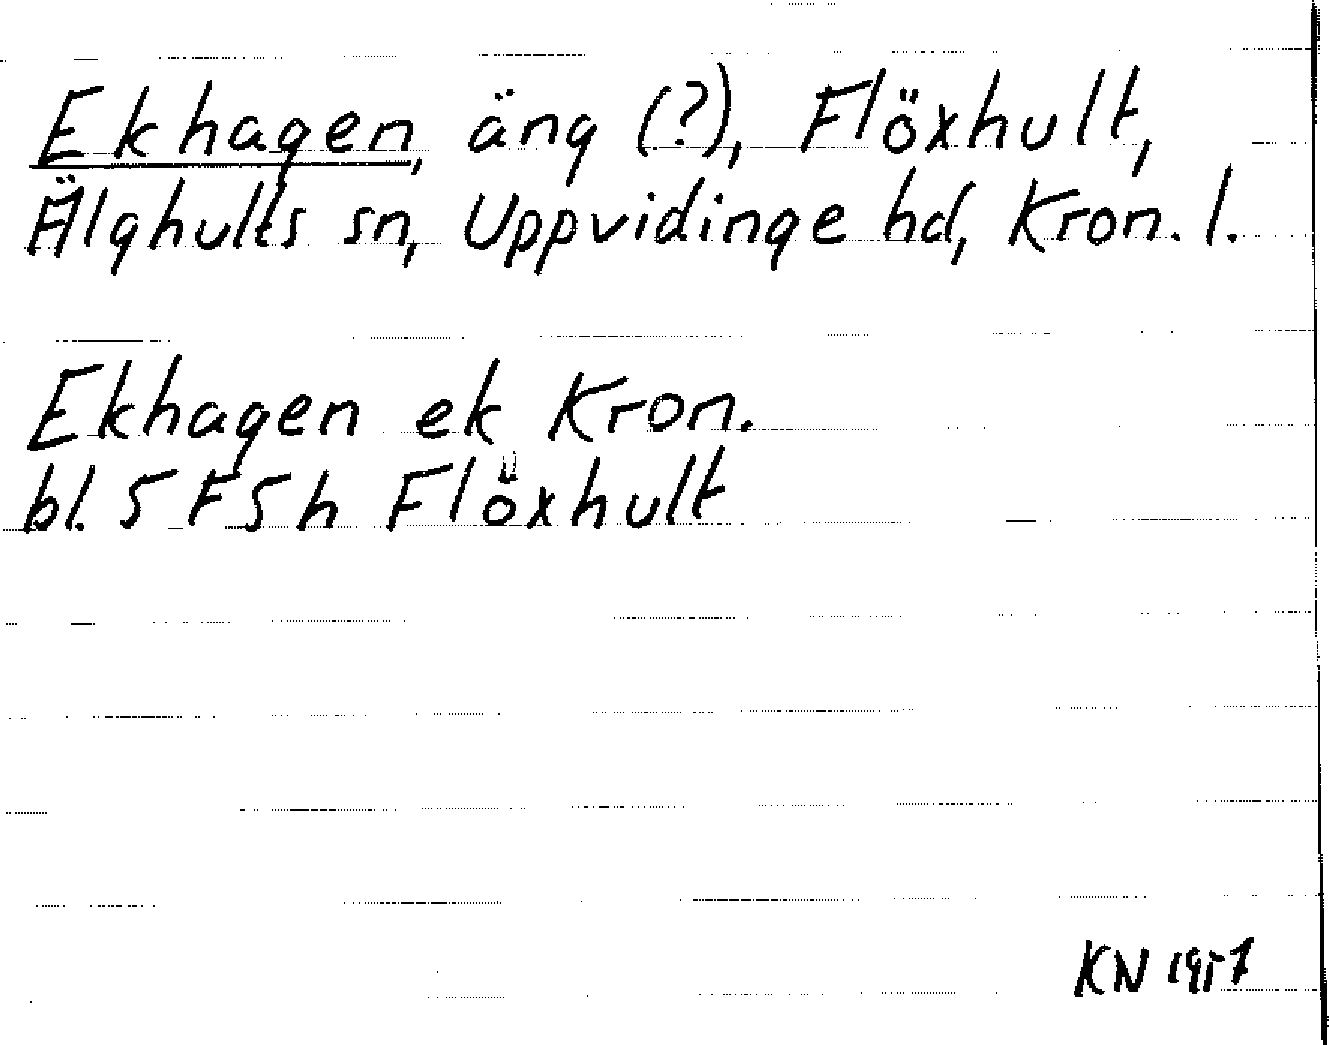 Ekhagen, äng (?), Flöxhult,
Älghults sn, Uppvidinge hd, Kron. l.
Ekhagen ek Kron.
bl. 5 F5h Flöxhult
KN 1957